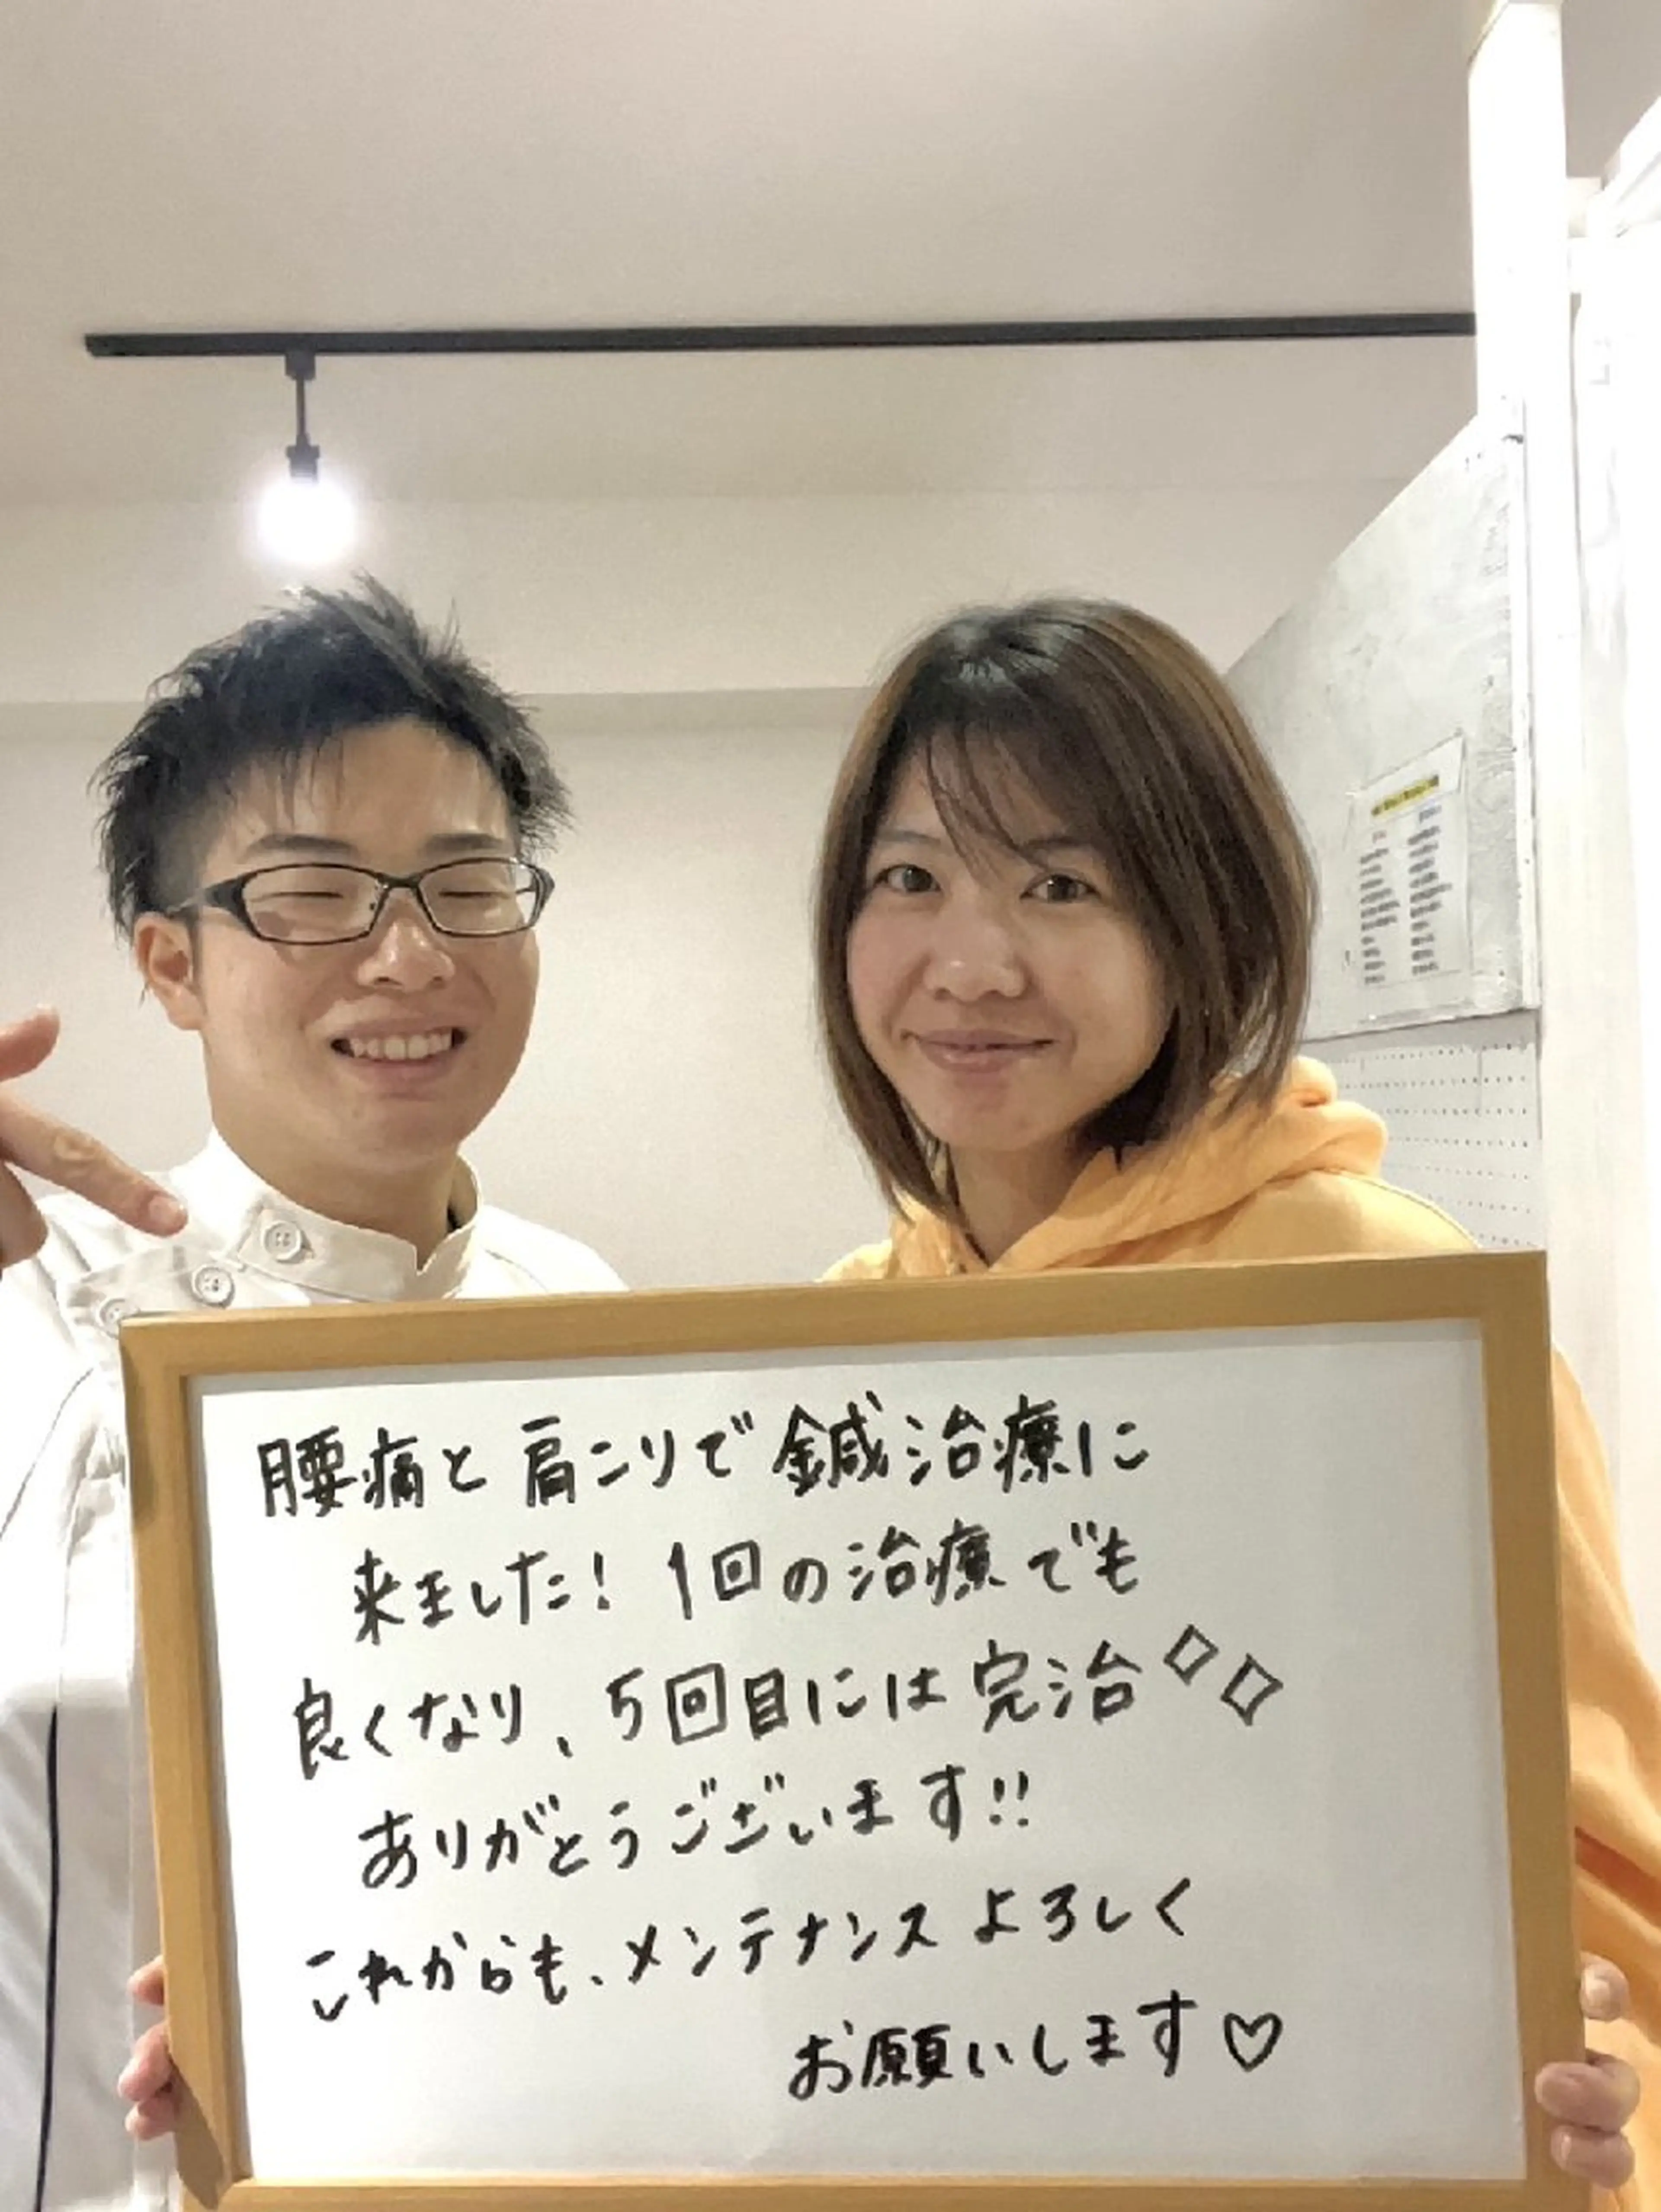 腰痛と肩こりで鍼治療に
来ました！1回の治療でも
良くなり、5回目には完治
ありがとうございます!!
これからも、メンテナンスよろしく
お願いします♡